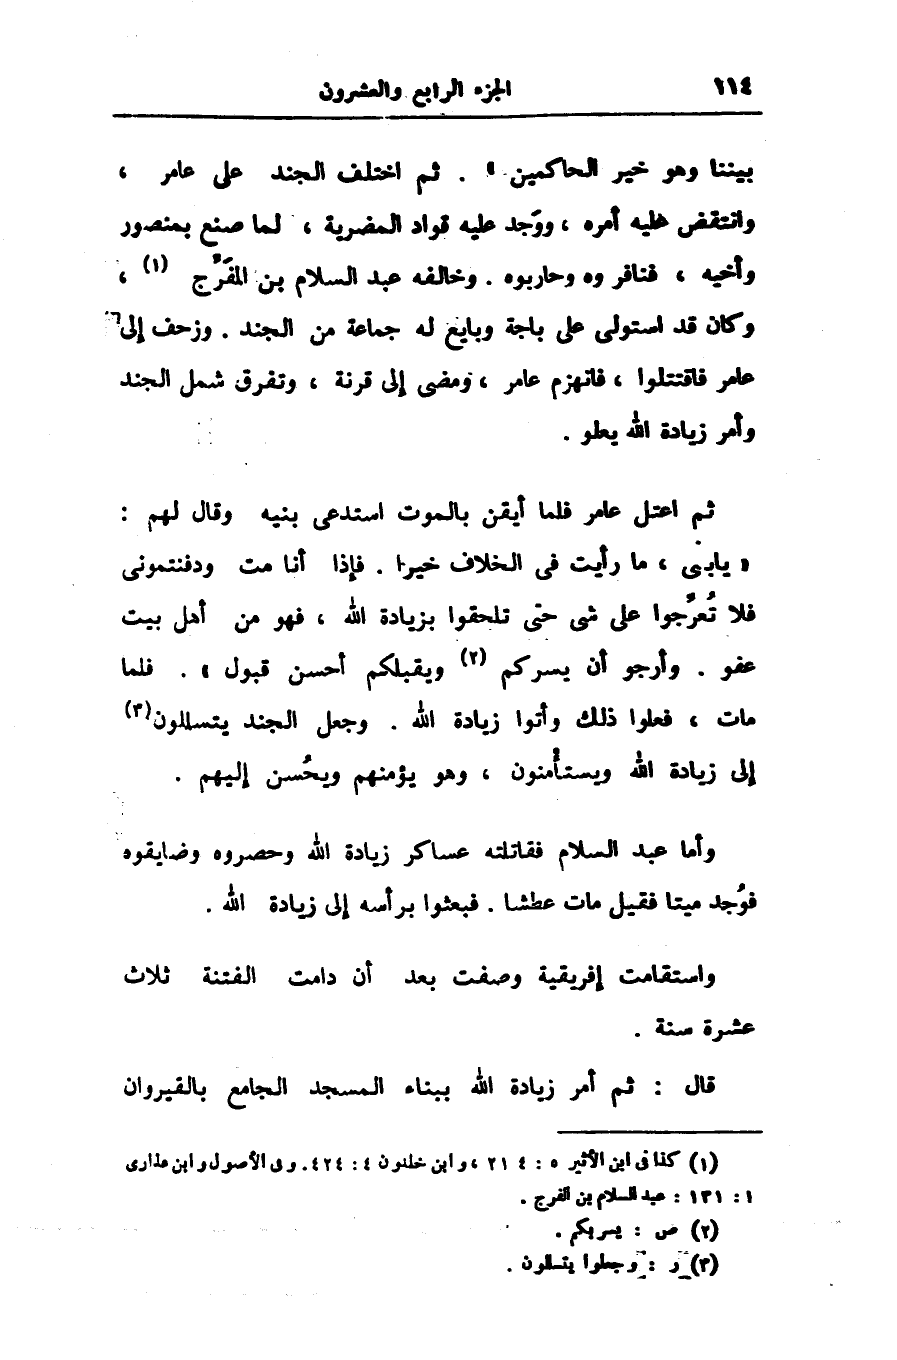 ١١٤
الجزء الرابع والعشرون
بيننا وهو خير الحاكمين » . ثم اختلف الجند على عامر ،
وانتقض عليه أمره ، ووَجد عليه قواد المضرية ، لما صنع بمنصور
وأخيه ، فنافروه وحاربوه . وخالفه عبد السلام بن المفَرَّج (١) ،
وكان قد استولى على باجة وبايع له جماعة من الجند . وزحف إلى
عامر فاقتتلوا ، فانهزم عامر ، ومضى إلى قرنة ، وتفرق شمل الجند
وأمر زيادة الله يعلو .
ثم اعتل عامر فلما أيقن بالموت استدعى بنيه وقال لهم :
« يابنى ، ما رأيت فى الخلاف خيرا . فإذا أنا مت ودفنتمونى
فلا تُعرِّجوا على شىء حتى تلحقوا بزيادة الله ، فهو من أهل بيت
عفو . وأرجو أن يسركم (٢) ويقبلكم أحسن قبول » . فلما
مات ، فعلوا ذلك وأتوا زيادة الله . وجعل الجند يتسللون(٣)
إلى زيادة الله ويستأمنون ، وهو يؤمنهم ويحُسن إليهم .
وأما عبد السلام فقاتلته عساكر زيادة الله وحصروه وضايقوه
فوُجد ميتا فقيل مات عطشا . فبعثوا برأسه إلى زيادة الله .
واستقامت إفريقية وصفت بعد أن دامت الفتنة ثلاث
عشرة سنة .
قال : ثم أمر زيادة الله ببناء المسجد الجامع بالقيروان
(١) كذا فى ابن الأثير ٥ : ٢١٤ ، وابن خلدون ٤ : ٤٢٤. وفى الأصول وابن عذارى
١ : ١٣١ : عبد السلام بن الفرج .
(٢) ص : يسربكم .
(٣) ر : وجعلوا يتسللون .